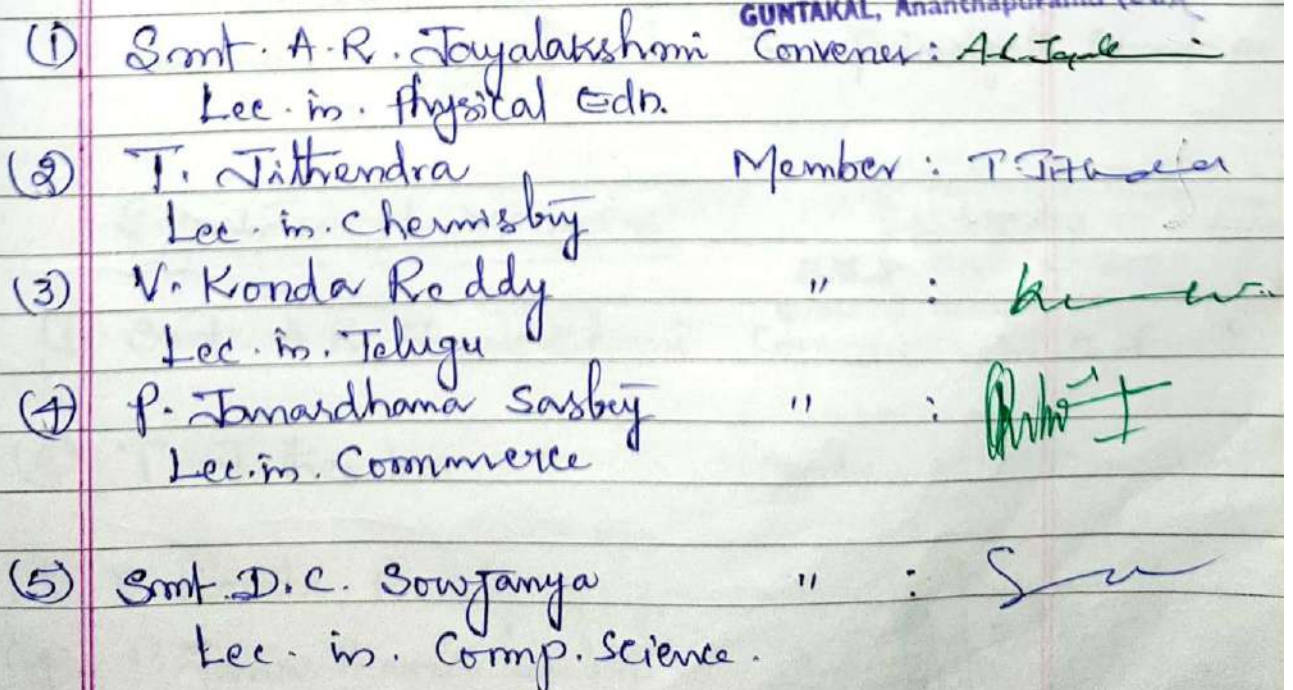 GUNTAKAL,
(1) Smt. A.R. Jayalakshmi Convener :
Lec. in. Physical Edn.
(2) T. Jithendra Member :
Lec. in. Chemistry
(3) V. Konda Reddy " :
Lec. in. Telugu
(4) P. Janardhana Sastry " :
Lec. in. Commerce
(5) Smt. D.C. Sowjanya " :
Lec. in. Comp. Science.